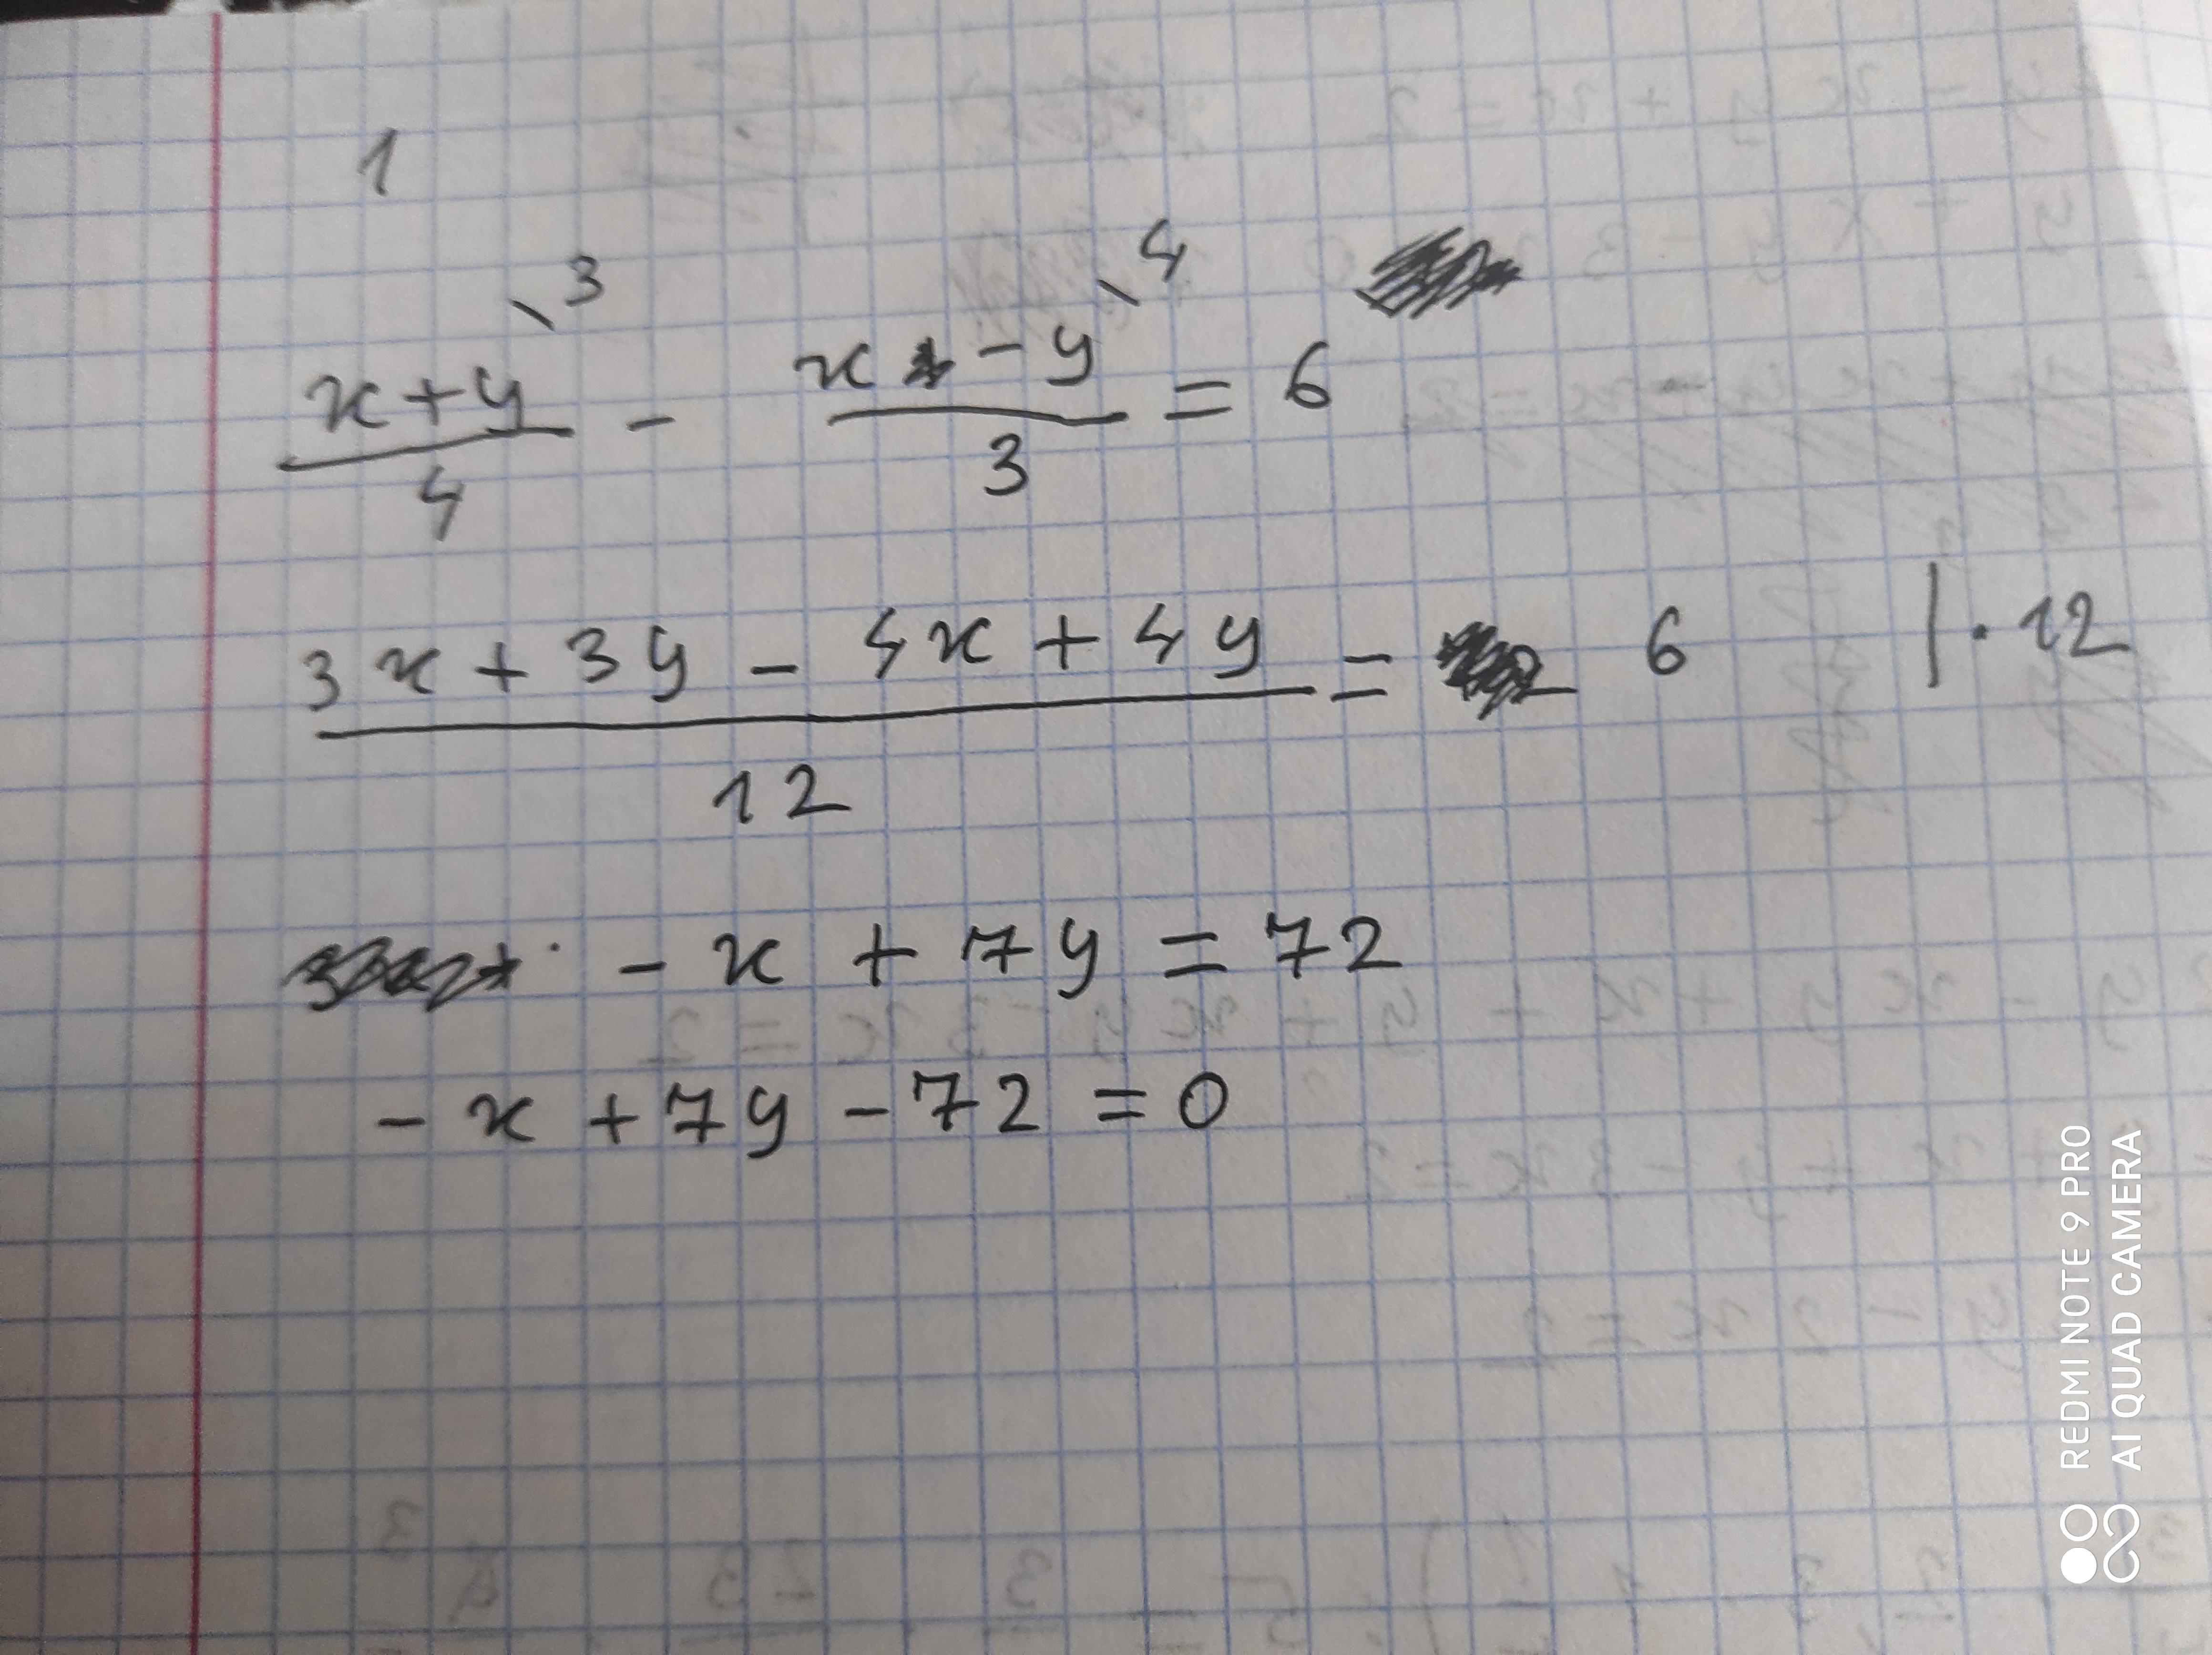 1
\3 \4
x+y/4 - x-y/3 = 6
3x+3y-4x+4y/12 = 6 |·12
-x+7y=72
-x+7y-72=0
REDMI NOTE 9 PRO
AI QUAD CAMERA